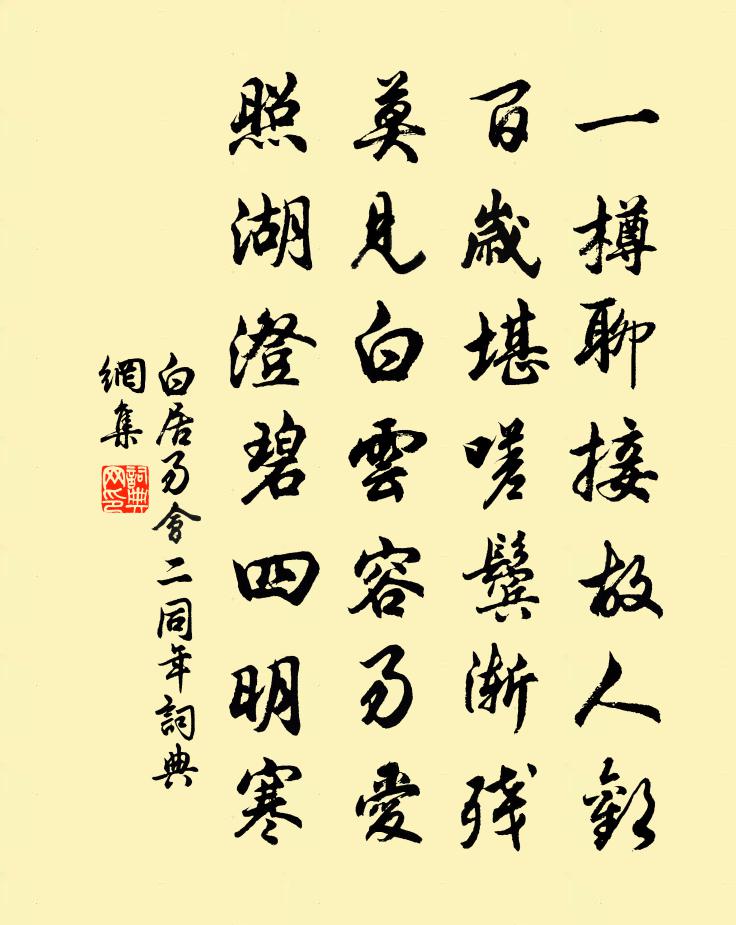 一樽聊接故人歡
百歲堪嗟鬢漸殘
莫見白雲容易愛
照湖澄碧四明寒
白居易會二同年詞典
網集
詞典
网印